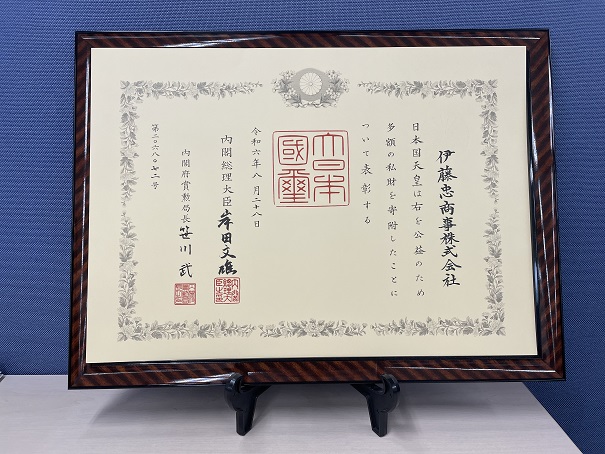 伊藤忠商事株式会社
日本国天皇は右を公益のため
多額の私財を寄附したことに
ついて表彰する
大日本國璽
令和六年八月二十八日
内閣総理大臣 岸田文雄
内閣府賞勲局長 笹川武
第二〇六八〇七二号